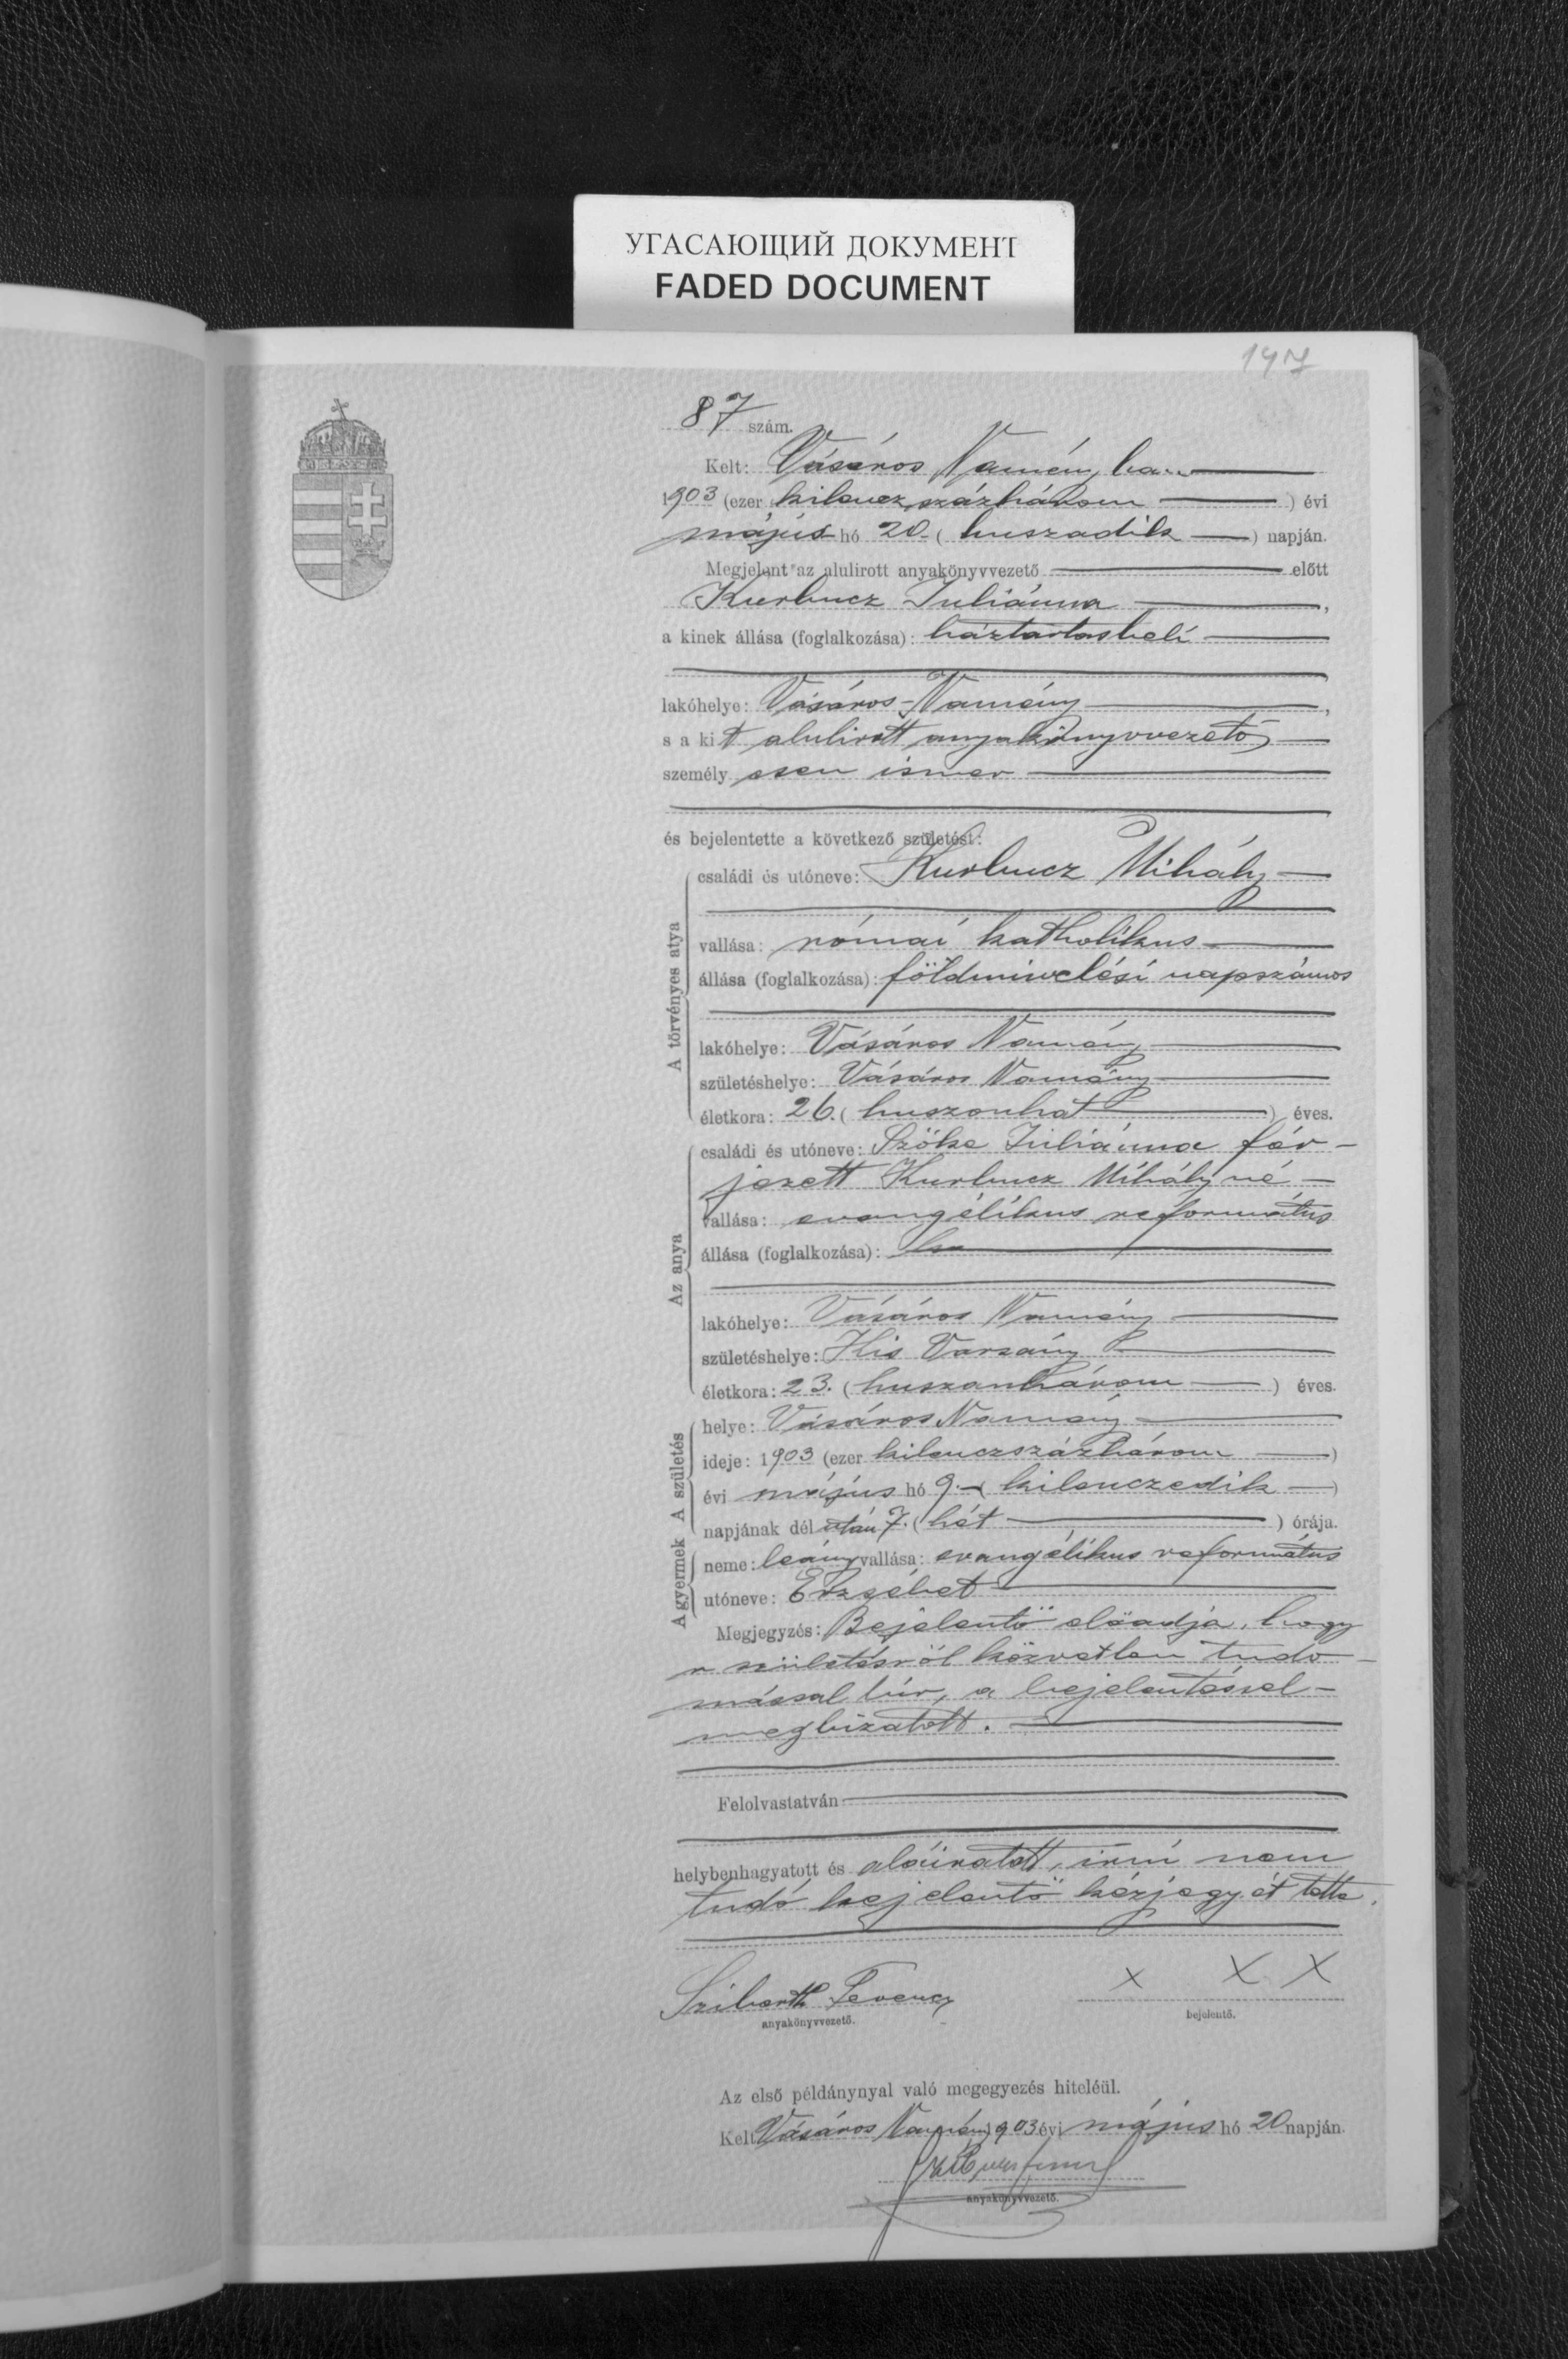 УГАСАЮЩИЙ ДОКУМЕНТ
FADED DOCUMENT
197
87 szám.
Kelt: Vásáros Namény ban
1903 (ezer kilenczszázhárom) évi
május hó 20. (huszadik) napján.
Megjelent az alulirott anyakönyvvezető előtt
Kurbucz Juliánna,
a kinek állása (foglalkozása): háztartásbeli
lakóhelye: Vásáros-Namény,
s a kit alulirott anyakönyvvezető
személyesen ismer
és bejelentette a következő születést:
A törvényes atya
családi és utóneve: Kurbucz Mihály
vallása: római katholikus
állása (foglalkozása): földmivelési napszámos
lakóhelye: Vásáros Namény
születéshelye: Vásáros Namény
életkora: 26. (huszonhat) éves.
Az anya
családi és utóneve: Szőke Juliánna fér-
jezett Kurbucz Mihályné
vallása: evangélikus református
állása (foglalkozása):
lakóhelye: Vásáros Namény
születéshelye: Kis Varsány
életkora: 23. (huszonhárom) éves.
A születés
helye: Vásáros Namény
ideje: 1903 (ezer kilenczszázhárom)
évi május hó 9. (kilenczedik)
napjának délután 7. (hét) órája.
A gyermek
neme: leány vallása: evangélikus református
utóneve: Erzsébet
Megjegyzés: Bejelentő előadja, hogy
a születésről közvetlen tudo-
mással bír, a bejelentéssel
megbizatott.
Felolvastatván
helybenhagyatott és aláiratott, irni nem
tudó bejelentő kézjegyét tette.
Ferencz X X X
anyakönyvvezető. bejelentő.
Az első példánynyal való megegyezés hiteléül.
Kelt Vásáros Namény 1903 évi május hó 20 napján.
anyakönyvvezető.